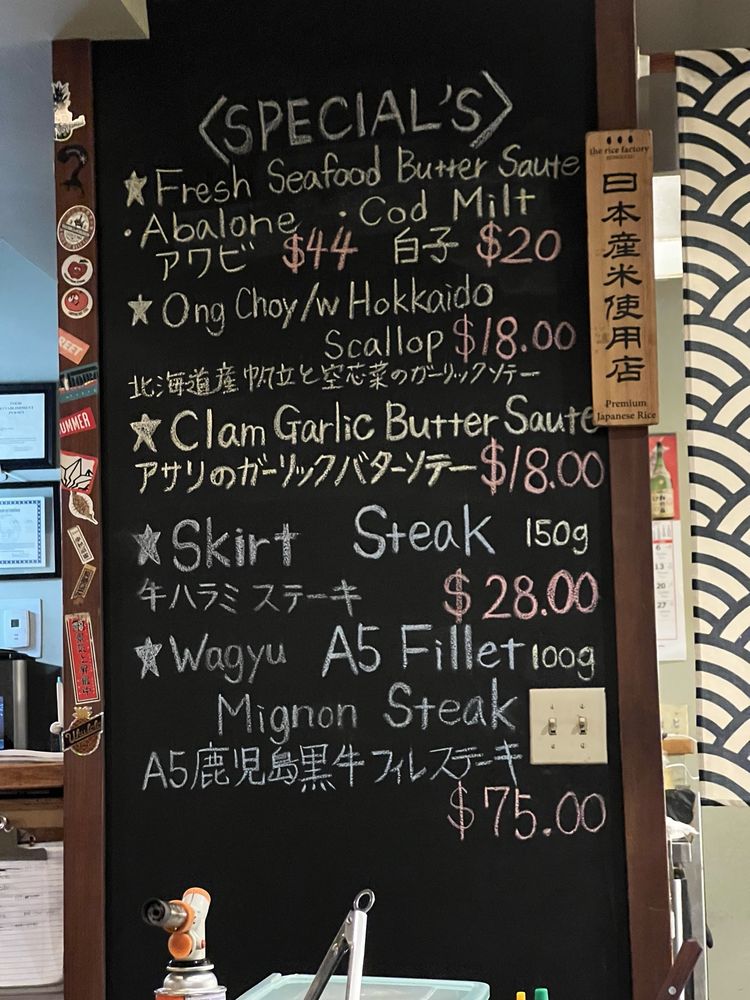 <SPECIAL'S>
★Fresh Seafood Butter Saute
・Abalone ・Cod Milt
アワビ $44 白子 $20
★Ong Choy/w Hokkaido
Scallop $18.00
北海道産帆立と空芯菜のガーリックソテー
★Clam Garlic Butter Saute
アサリのガーリックバターソテー $18.00
★Skirt Steak 150g
牛ハラミステーキ $28.00
★Wagyu A5 Fillet 100g
Mignon Steak
A5鹿児島黒牛フィレステーキ
$75.00
the rice factory
日本産米使用店
Premium
Japanese Rice
REET
SUMMER
6
13
20
27